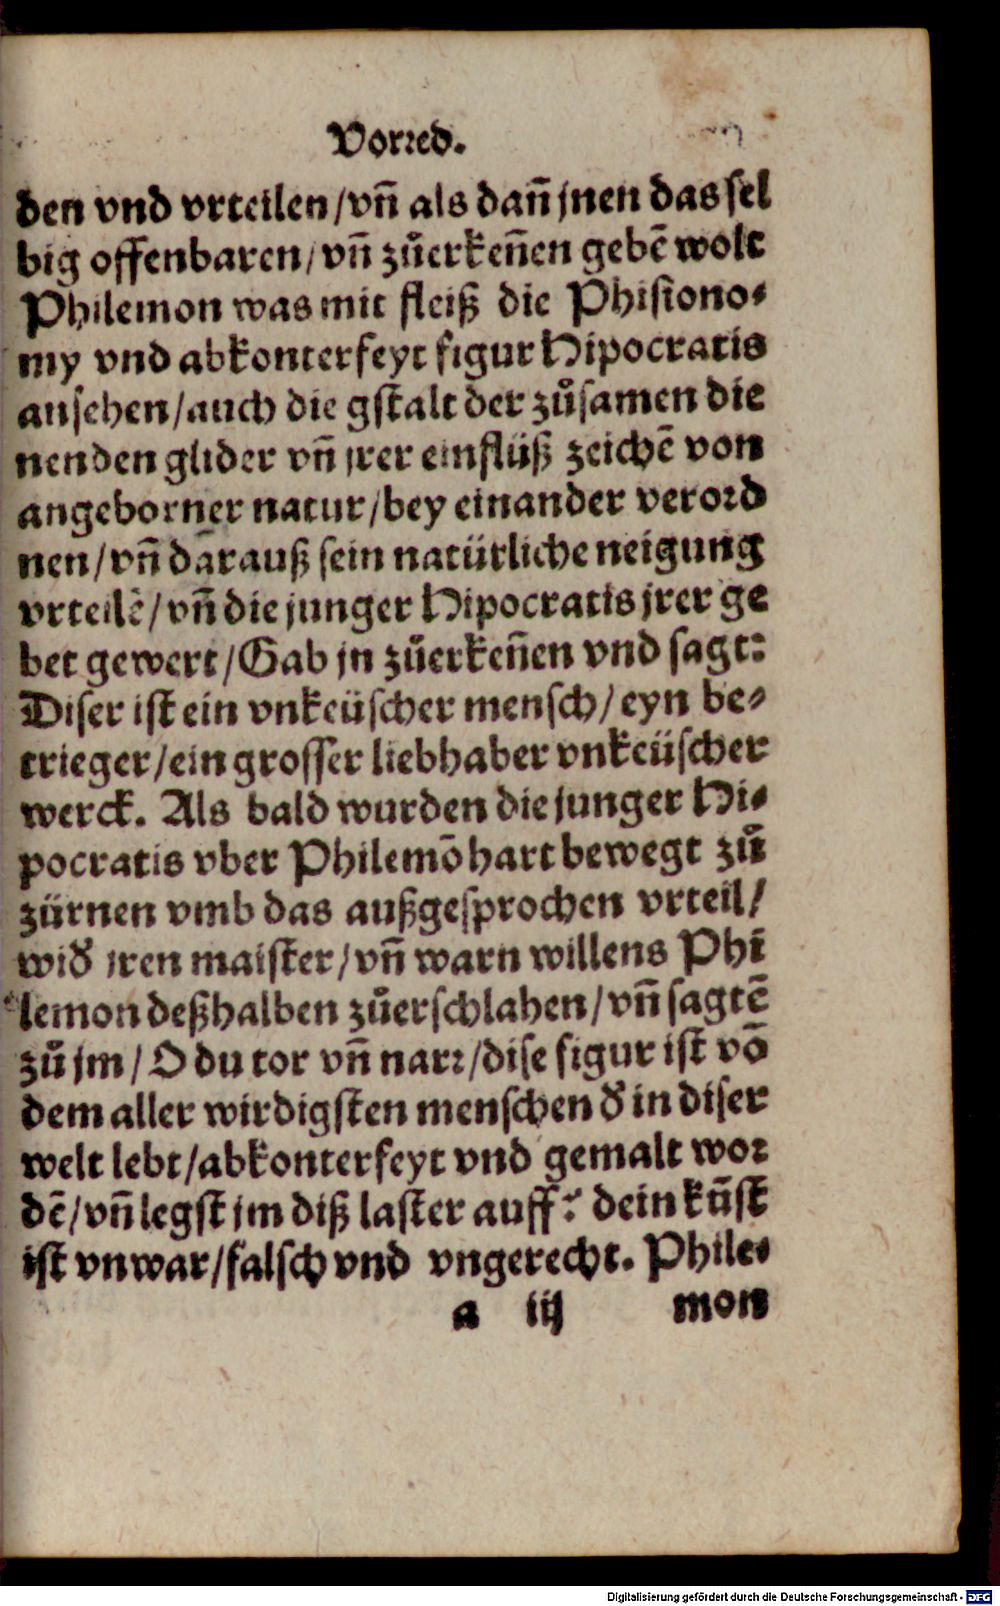 Vorred.
den vnd vrteilen/vñ als dañ jnen das sel
big offenbaren/vñ zůerkeñen gebẽ wolt
Philemon was mit fleiß die Phisiono⸗
my vnd abkonterfeyt figur Hipocratis
ansehen/auch die gstalt der zůsamen die
nenden glider vñ jrer einflüß zeichẽ von
angeborner natur/bey einander verord
nen/vñ darauß sein natürliche neigung
vrteilẽ/vñ die junger Hipocratis jrer ge
bet gewert/Gab jn zůerkeñen vnd sagt:
Diser ist ein vnkeüscher mensch/eyn be⸗
trieger/ein grosser liebhaber vnkeüscher
werck. Als bald wurden die junger Hi⸗
pocratis vber Philemõ hart bewegt zů
zürnen vmb das außgesprochen vrteil/
widꝰ jren maister/vñ warn willens Phi
lemon deßhalben zůerschlahen/vñ sagtẽ
zů jm/O du tor vñ narr/dise figur ist võ
dem aller wirdigsten menschen dꝰ in diser
welt lebt/abkonterfeyt vnd gemalt wor
dẽ/vñ legst jm diß laster auff? dein kũst
ist vnwar/falsch vnd vngerecht. Phile⸗
a iij mon
Digitalisierung gefördert durch die Deutsche Forschungsgemeinschaft - DFG